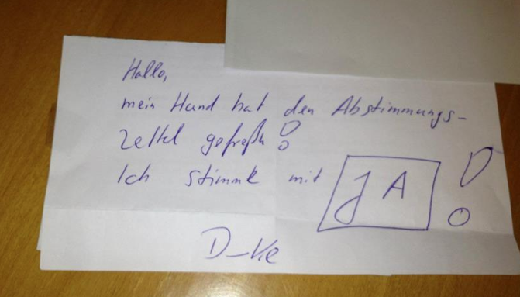 Hallo,
mein Hund hat den Abstimmungs-
zettel gefreßen!
Ich stimme mit JA!
D-ke